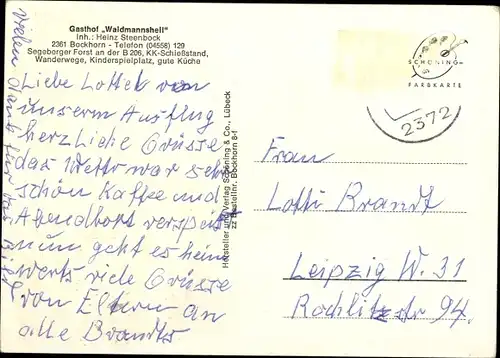 Gasthof „Waidmannsheil"
Inh.: Heinz Steenbock
2361 Bockhorn - Telefon (04556) 129
Segeberger Forst an der B 206, KK-Schießstand,
Wanderwege, Kinderspielplatz, gute Küche
Liebe Lotte von
unserm Ausflug
herzliche Grüsse
das Wetter war sehr
schön Kaffee und
Abendbort verspeist
nun geht es heim
werts viele Grüsse
von Eltern an
alle Brandts
vielen Dank für das Bild
Hersteller und Verlag Schöning & Co., Lübeck
zz Bestellnr. Bockhorn 8-f
SCHÖNING
FARBKARTE
2372
Frau
Lotti Brandt
Leipzig W. 31
Rochlitzstr 94.